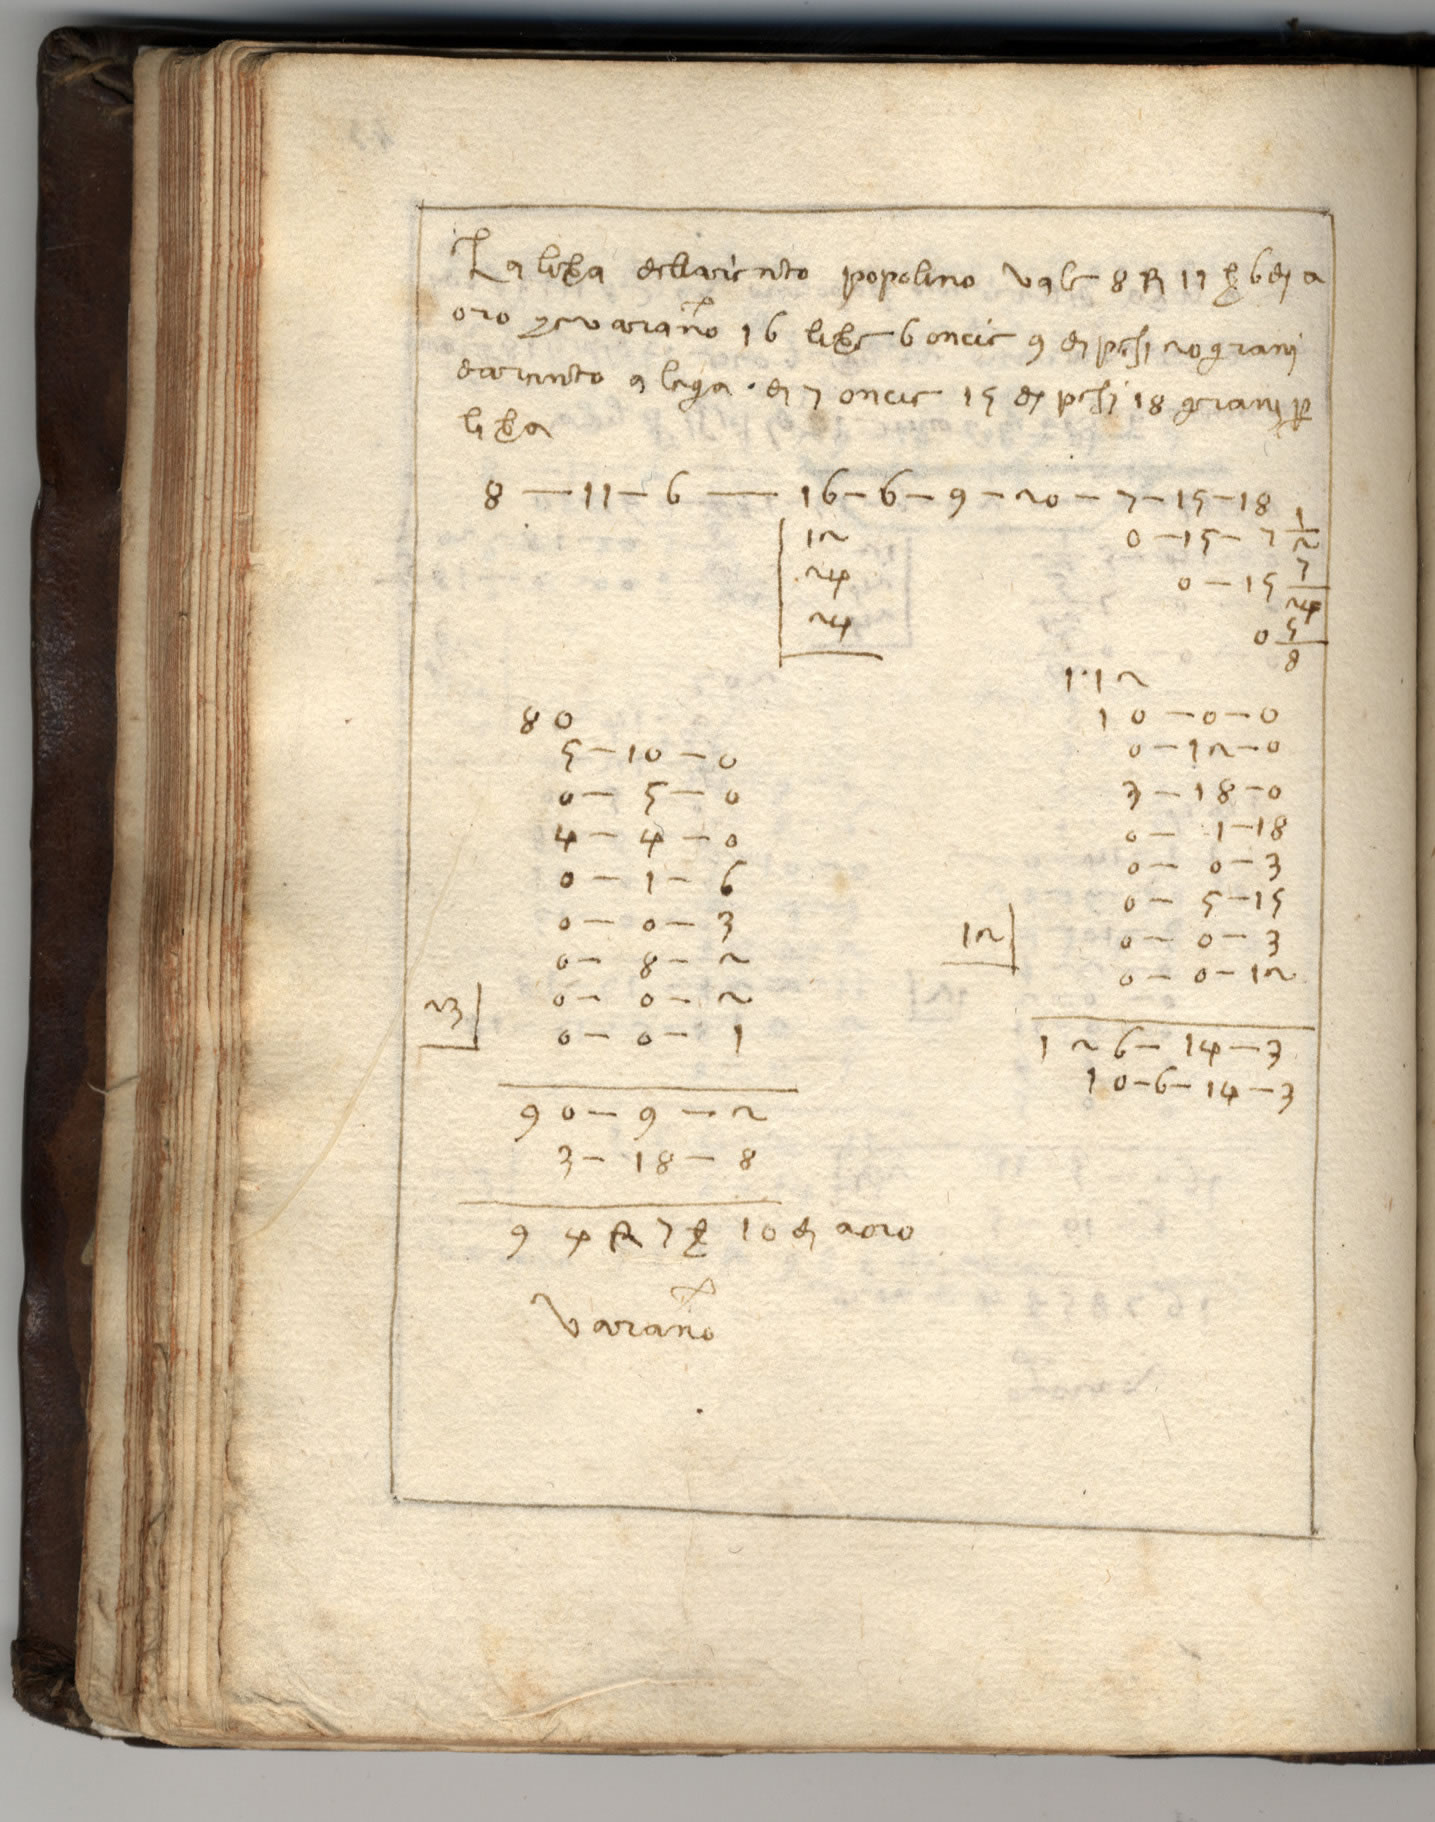 La libra dellariento popolino vale 8 R 11 ß 6 d a
oro che varano 16 libre 6 oncie 9 d pesi 20 grani
dariento a lega · di 7 oncie 15 d pesi 18 grani per
libra
8 — 11 — 6 — 16 — 6 — 9 — 20 — 7 — 15 — 18
12 0 — 15 — 7 1/2
24 0 — 15 7/24
24 0 5/8
112
80 10 — 0 — 0
5 — 10 — 0 0 — 12 — 0
0 — 5 — 0 3 — 18 — 0
4 — 4 — 0 0 — 1 — 18
0 — 1 — 6 0 — 0 — 3
0 — 0 — 3 0 — 5 — 15
0 — 8 — 2 12 0 — 0 — 3
23 0 — 0 — 2 0 — 0 — 12
0 — 0 — 1
126 — 14 — 3
10 — 6 — 14 — 3
90 — 9 — 2
3 — 18 — 8
94 R 7 ß 10 d a oro
Varano